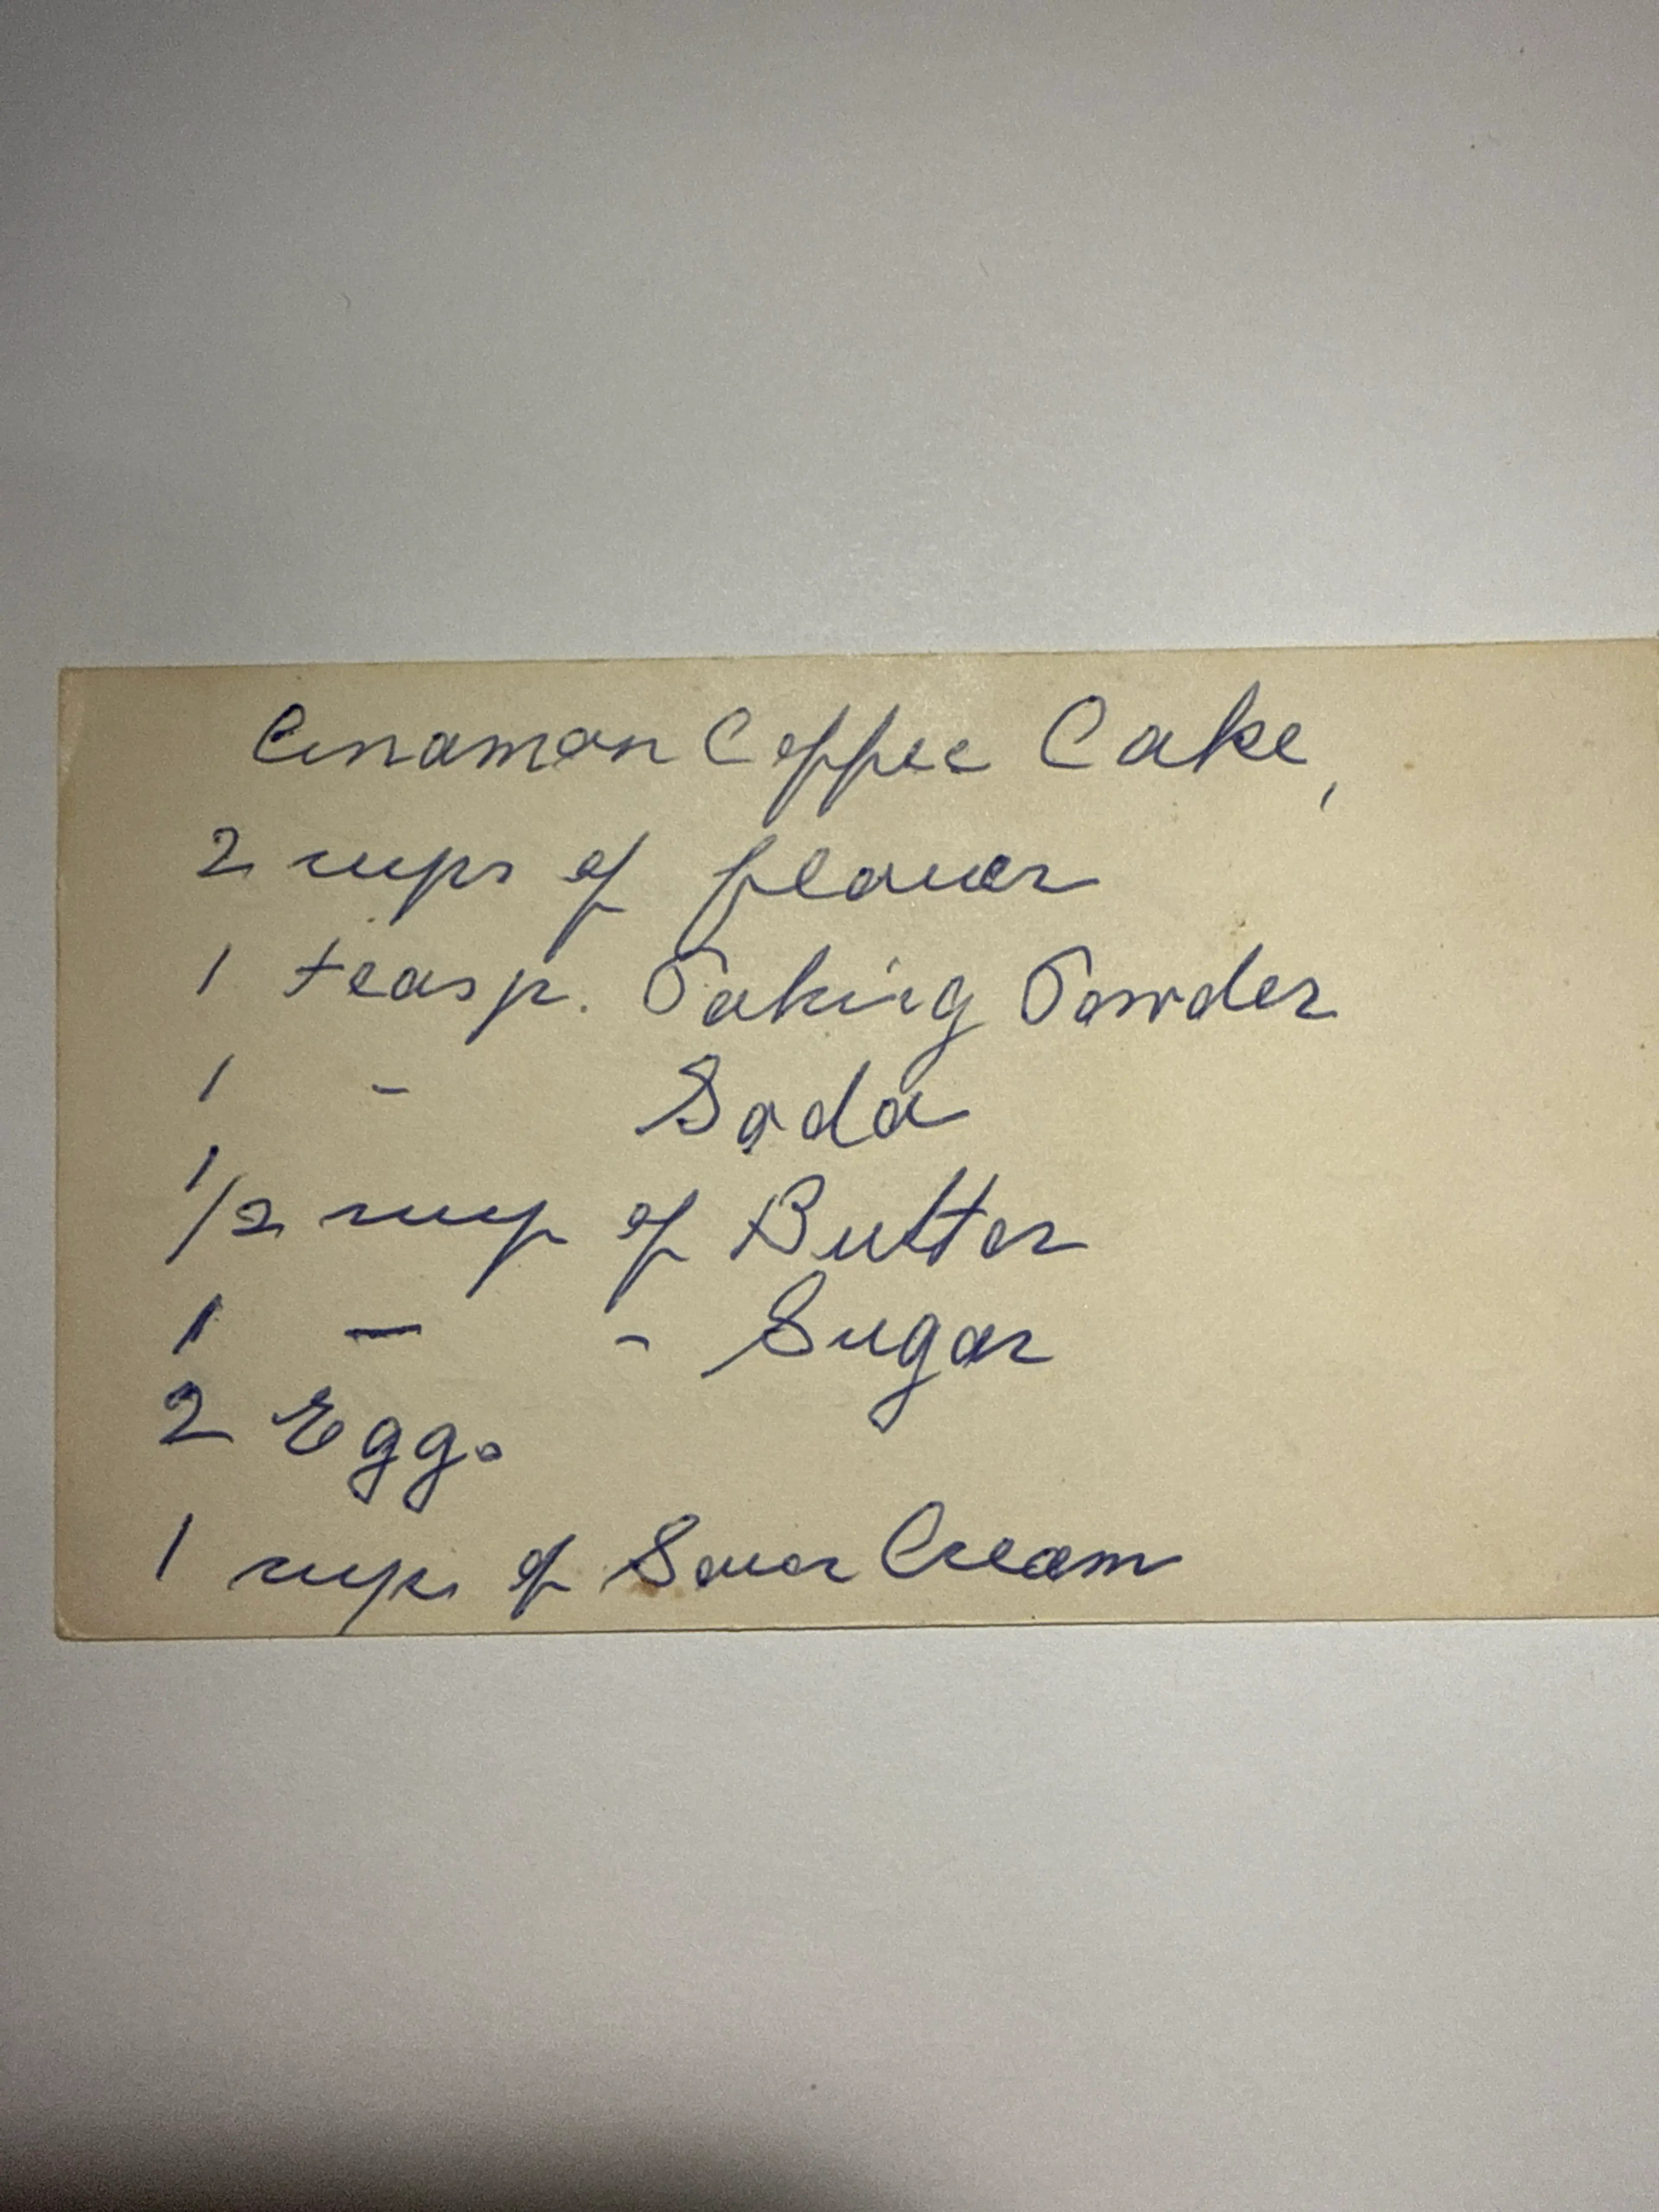 Cinamon Coffee Cake,
2 cups of flouer
1 teasp. Baking Powder
1 - Soda
1/2 cup of Butter
1 — - Sugar
2 Eggs
1 cups of Souer Cream